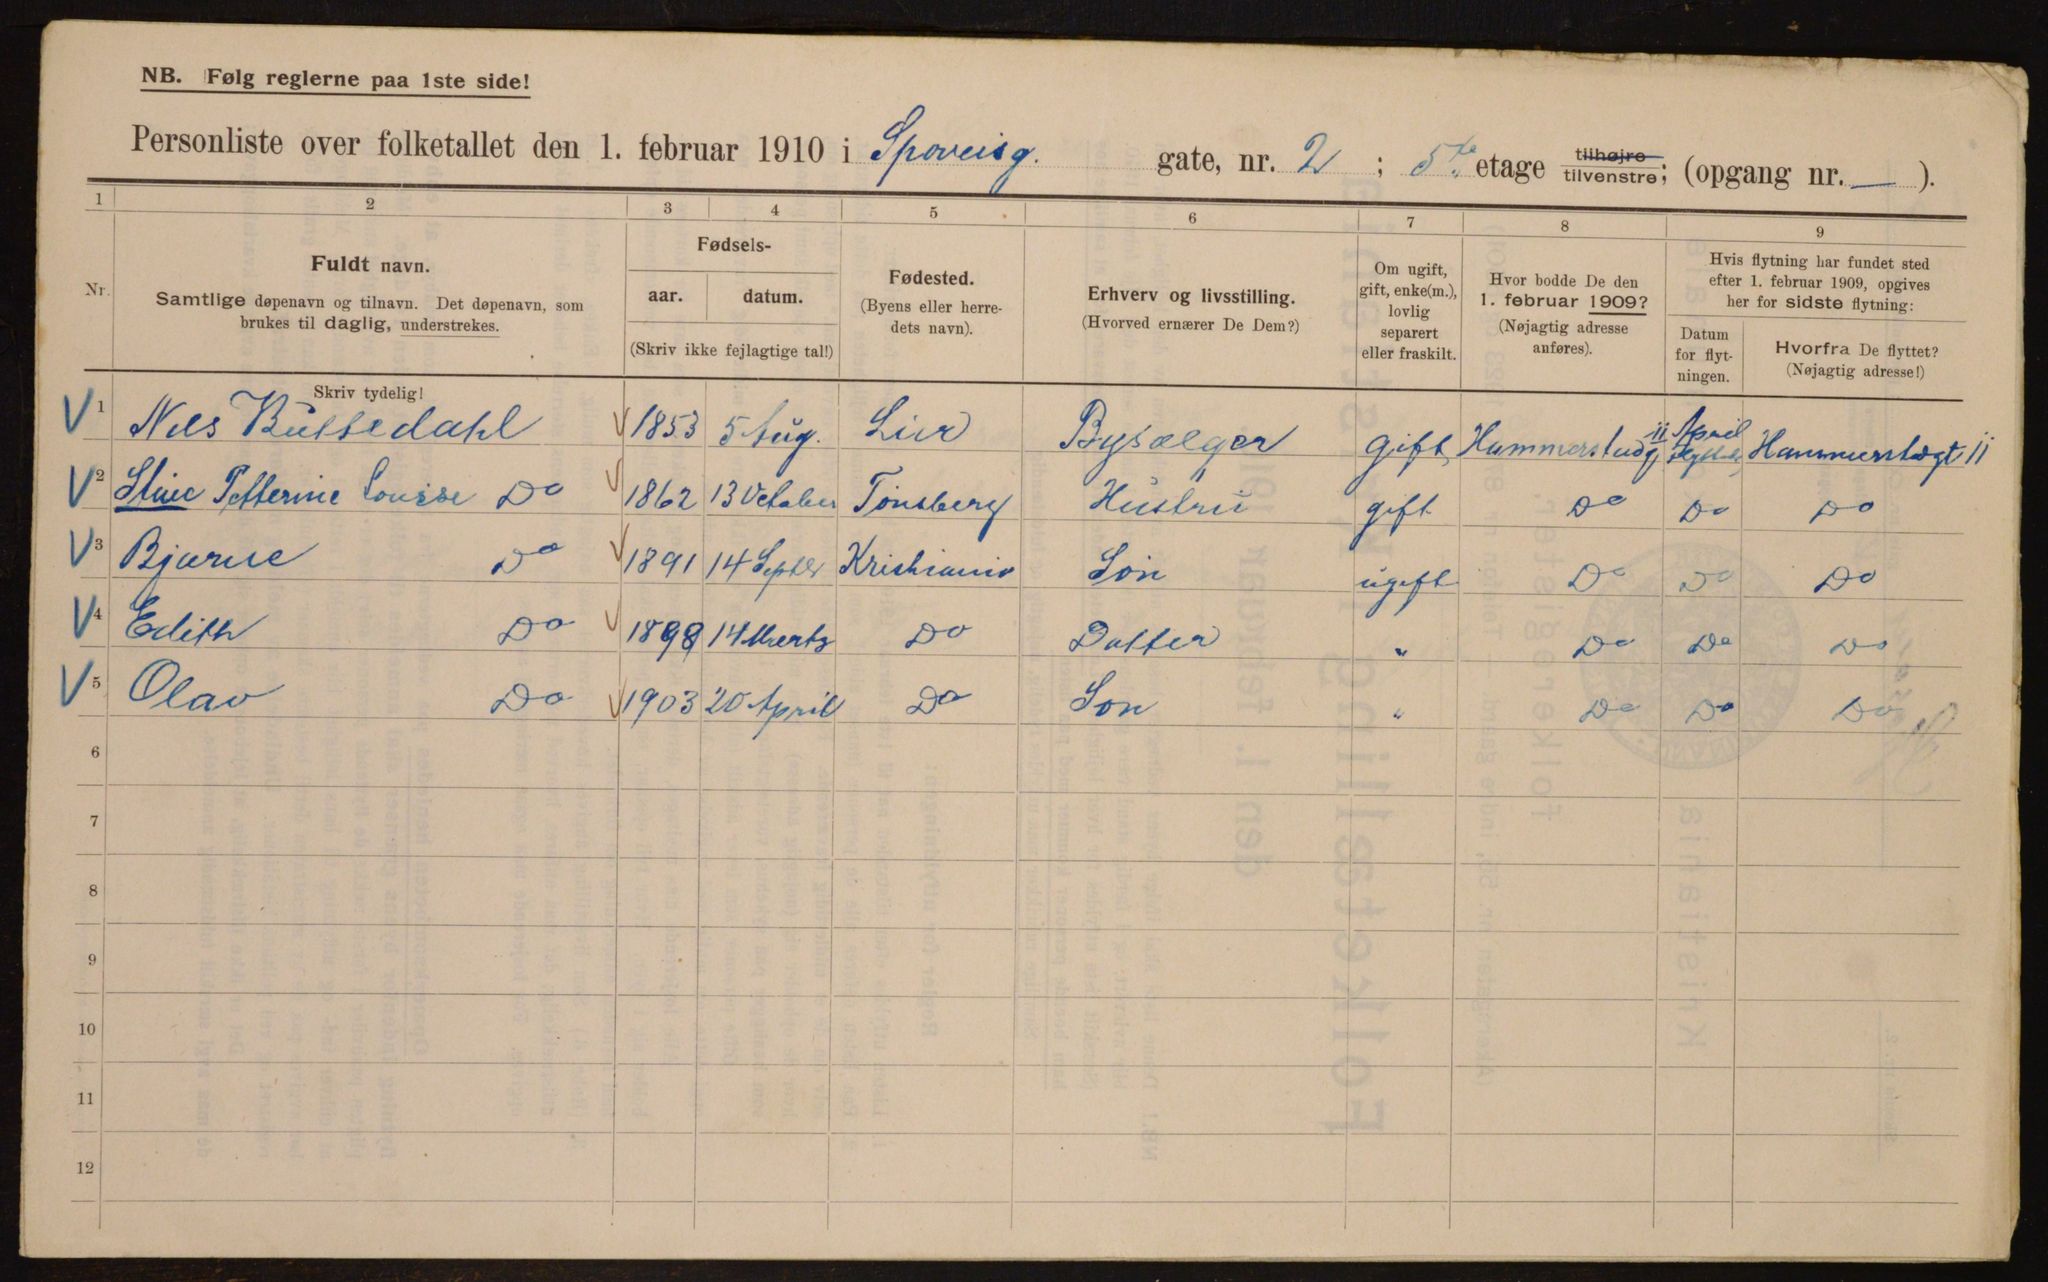 NB. Følg reglerne paa 1ste side!
Personliste over folketallet den 1. februar 1910 i Sporveisg. gate, nr. 2 ; 5te etage tilhøjre tilvenstre; (opgang nr. — ).
1 2 3 4 5 6 7 8 9
Nr.
Fuldt navn.
Samtlige døpenavn og tilnavn. Det døpenavn, som
brukes til daglig, understrekes.
Skriv tydelig!
Fødsels-
aar. datum.
(Skriv ikke fejlagtige tal!)
Fødested.
(Byens eller herre-
dets navn).
Erhverv og livsstilling.
(Hvorved ernærer De Dem?)
Om ugift,
gift, enke(m.),
lovlig
separert
eller fraskilt.
Hvor bodde De den
1. februar 1909?
(Nøjagtig adresse
anføres).
Hvis flytning har fundet sted
efter 1. februar 1909, opgives
her for sidste flytning:
Datum
for flyt-
ningen.
Hvorfra De flyttet?
(Nøjagtig adresse!)
V 1 Nils V 1853 5 Aug. Lier Bysælger gift 11 April Hammerstadgt 11
V 2 Petterine Louise Do V 1862 13 October Tönsberg Hustru gift Do Do Do
V 3 Bjarne Do V 1891 14 Septbr Kristiania Sön ugift Do Do Do
V 4 Edith Do V 1898 14 Marts Do Datter " Do Do Do
V 5 Olav Do V 1903 20 April Do Son " Do Do Do
6
7
8
9
10
11
12